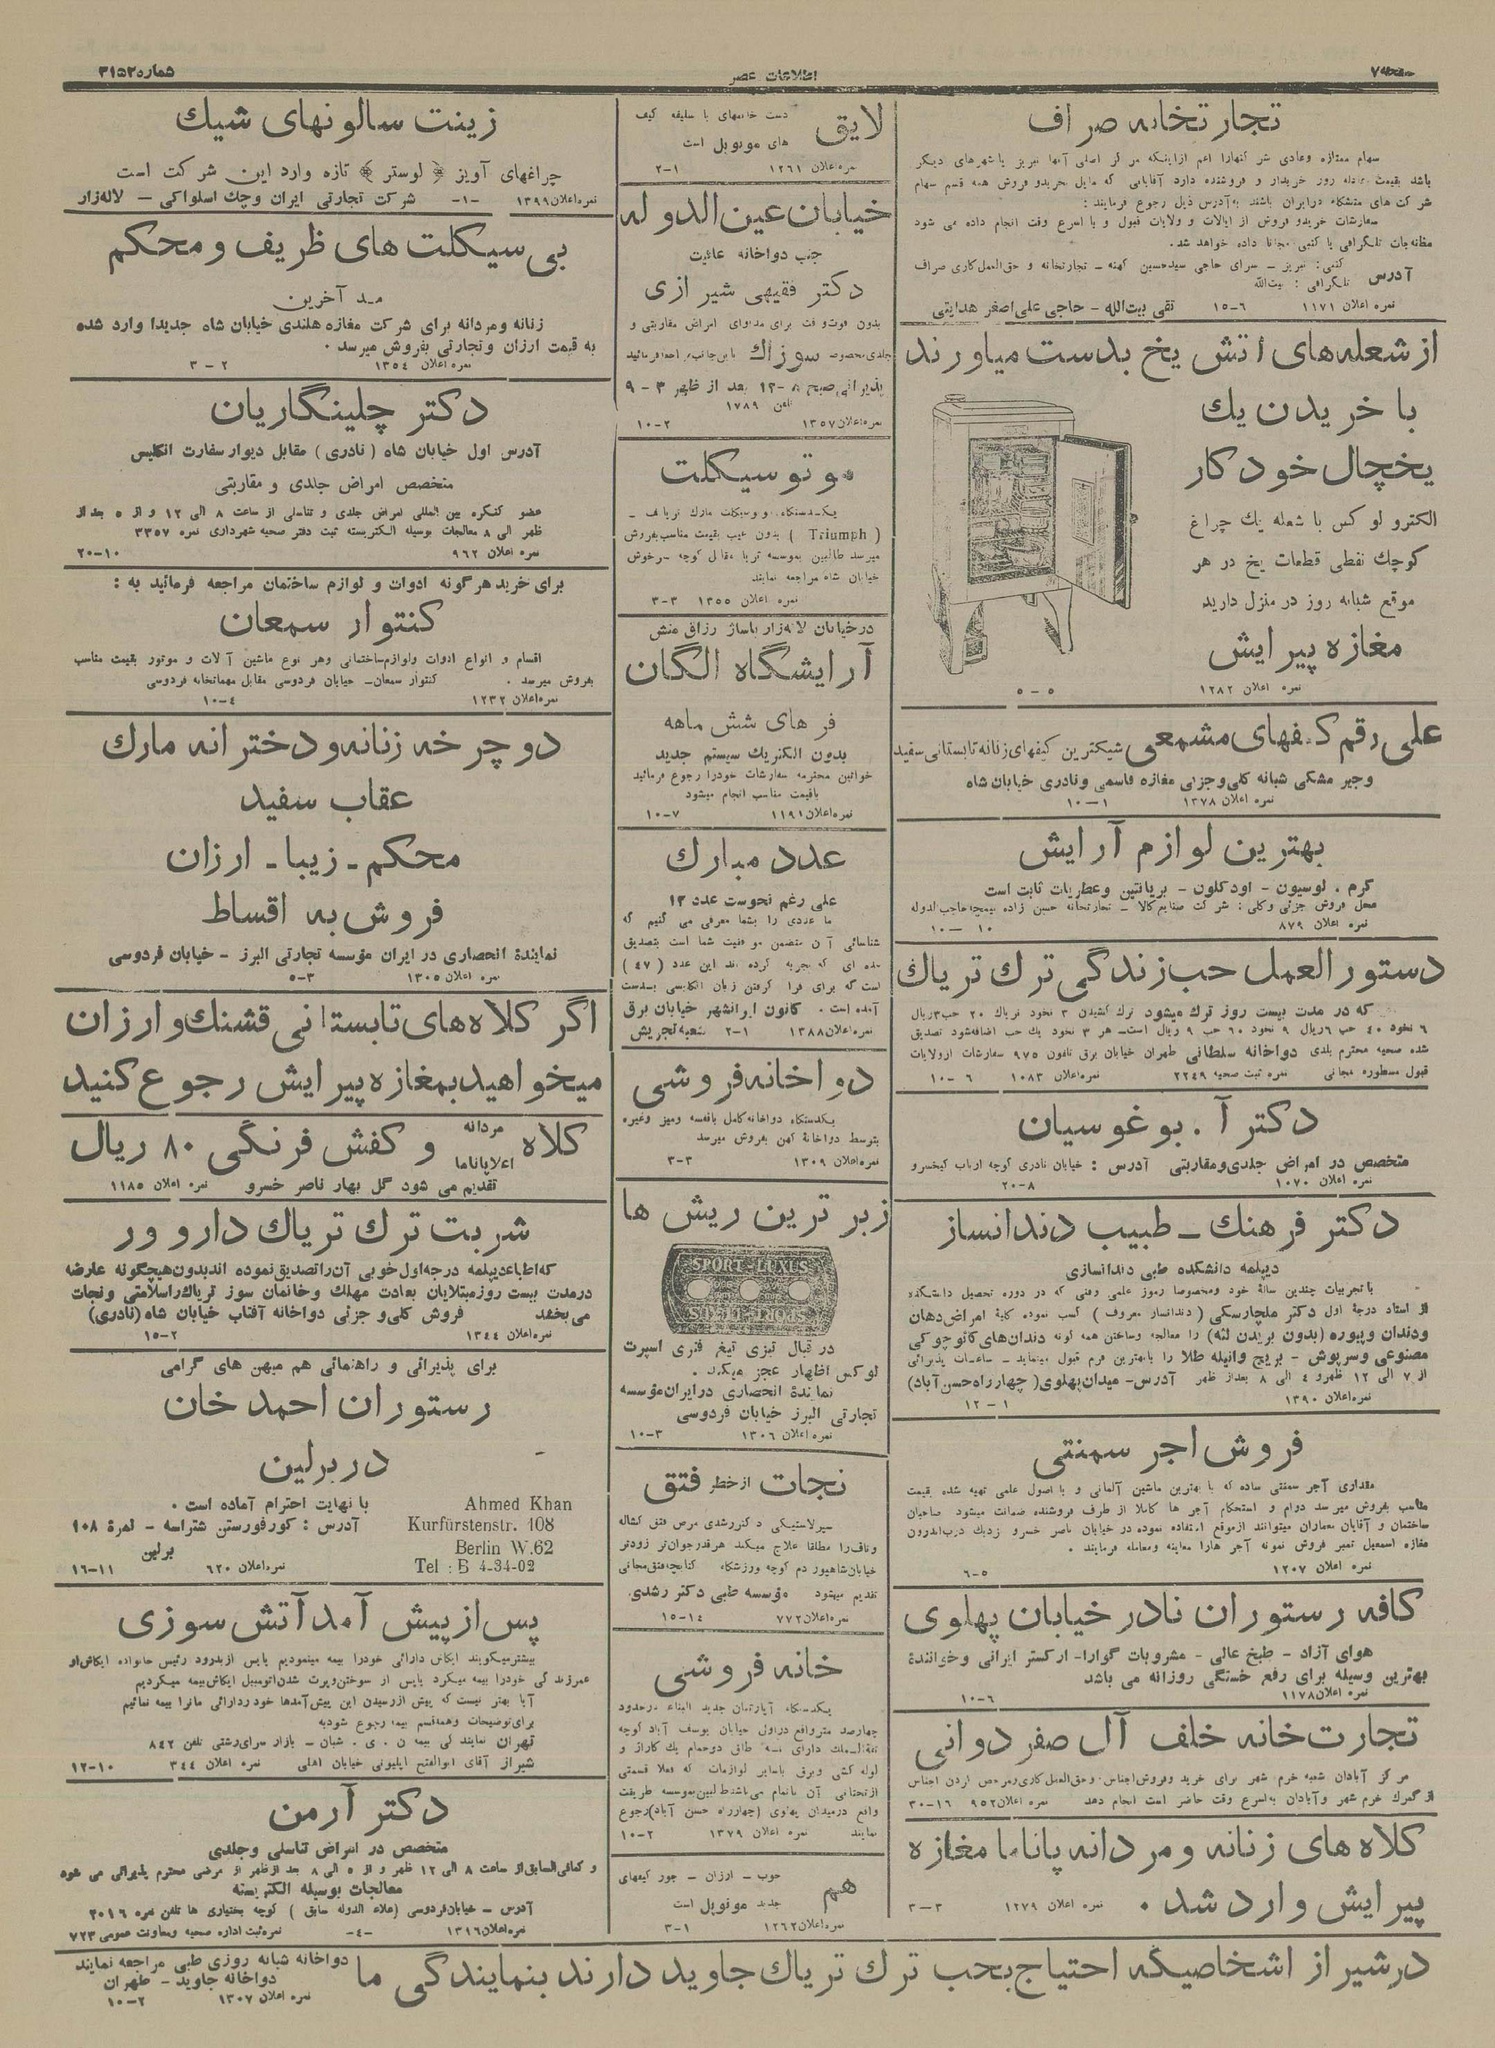 صفحه ۷
اطلاعات عصر
شماره ۳۱۵۲
تجارتخانه صراف
سهام ممتازه وعادی شرکتهارا اعم ازاینکه مرکز اصلی آنها تبریز یاشهرهای دیگر
باشد بقیمت عادله روز خریدار و فروشنده دارد آقایانی که مایل بخریدوفروش همه قسم سهام
شرکت های متشکله درایران باشند به آدرس ذیل رجوع فرمایند :
سفارشات خریدو فروش از ایالات و ولایات قبول و باسرع وقت انجام داده می شود
مظنه‌جات تلگرافی یا کتبی مجانا داده خواهد شد.
آدرس
کتبی: تبریز ـ سرای حاجی سیدحسین کهنه ـ تجارتخانه و حق‌العمل‌کاری صراف
تلگرافی : بیت‌الله
نمره اعلان ۱۱۷۱ ۶-۱۵ تقی بیت‌الله - حاجی علی اصغر هدایتی
ازشعله‌های اتش یخ بدست میاورند
با خریدن یك
یخچال خودکار
الکترو لوکس با شعله یك چراغ
کوچك نفطی قطعات یخ در هر
موقع شبانه روز در منزل دارید
مغازه پیرایش
نمره اعلان ۱۲۸۲ ۵-۵
علی رقم کیفهای مشمعی شیکترین کیفهای زنانه تابستانی سفید
وجیر مشکی شبانه کلی وجزئی مغازه قاسمی ونادری خیابان شاه
نمره اعلان ۱۳۷۸ ۱-۱۰
بهترین لوازم آرایش
کرم . لوسیون - اودکلون - بریانتین وعطریات ثابت است
محل فروش جزئی وکلی: شرکت صنایع‌کالا ـ تجارتخانه حسین زاده تیمچه حاجب‌الدوله
نمره اعلان ۸۷۹ ۱۰-۱۰
دستورالعمل حب زندگی ترك تریاك
که در مدت بیست روز ترك میشود ترك کشیدن ۳ نخود تریاك ۲۰ حب ۳ریال
۶ نخود ۴۰ حب ۶ریال ۹ نخود ۶۰ حب ۹ ریال است- هر ۳ نخود یك حب اضافه‌شود تصدیق
شده صحیه محترم بلدی دواخانه سلطانی طهران خیابان برق تلفون ۹۷۵ سفارشات ازولایات
قبول مسطوره مجانی نمره ثبت صحیه ۲۲۴۹ نمره اعلان ۱۰۸۳ ۶-۱۰
دکتر آ . بوغوسیان
متخصص در امراض جلدی ومقاربتی آدرس : خیابان نادری کوچه ارباب کیخسرو
نمره اعلان ۱۰۷۰ ۸-۲۰
دکتر فرهنك ـ طبیب دندانساز
دیپلمه دانشکده طبی دندانسازی
با تجربیات چندین سالهٔ خود ومخصوصا رموز علمی وفنی که در دوره تحصیل دانشکده
از استاد درجهٔ اول دکتر ملچارسکی ( دندانساز معروف ) کسب نموده کلیهٔ امراض دهان
ودندان وپیوره (بدون بریدن لثه) را معالجه وساختن همه گونه دندان‌های کائوچوکی
مصنوعی وسرپوش - بریج وانیله طلا را بابهترین فرم قبول مینماید - ساعات پذیرائی
از ۷ الی ۱۲ ظهرو ۴ الی ۸ بعداز ظهر آدرس- میدان پهلوی( چهارراه حسن آباد)
نمره اعلان ۱۳۹۰ ۱-۱۲
فروش اجر سمنتی
مقداری آجر سمنتی ساده که با بهترین ماشین آلمانی و با اصول علمی تهیه شده بقیمت
مناسب بفروش میرسد دوام و استحکام آجر ها کاملا از طرف فروشنده ضمانت میشود صاحبان
ساختمان و آقایان معماران میتوانند ازموقع استفاده نموده در خیابان ناصر خسرو نزدیك درب‌اندرون
مغازه اسمعیل تمبر فروش نمونه آجر هارا معاینه ومعامله فرمایند .
نمره اعلان ۱۲۰۷ ۵-۶
کافه رستوران نادر خیابان پهلوی
هوای آزاد - طبخ عالی - مشروبات گوارا- ارکستر ایرانی وخواننده
بهترین وسیله برای رفع خستگی روزانه می باشد
نمره اعلان ۱۱۷۸ ۶-۱۰
تجارت خانه خلف آل صفر دوانی
مرکز آبادان شعبه خرم شهر برای خرید وفروش اجناس وحق‌العمل کاری ومرخص کردن اجناس
از گمرك خرم شهر وآبادان به اسرع وقت حاضر است انجام دهد نمره اعلان ۹۵۲ ۱۶-۳۰
کلاه های زنانه ومردانه پاناما مغازه
پیرایش وارد شد .
نمره اعلان ۱۲۷۹ ۳-۳
لایق
دست خانمهای با سلیقه کیف
های مونوپل است
نمره اعلان ۱۲۶۱ ۱-۲
خیابان عین الدوله
جنب دواخانه عافیت
دکتر فقیهی شیرازی
بدون فوت وقت برای مداوای امراض مقاربتی و
جلدی مخصوصا سوزاك باین‌جانب مراجعه فرمائید
پذیرائی صبح ۸-۱۲ بعد از ظهر ۳-۹
تلفن ۱۷۸۹
نمره اعلان ۱۳۵۷ ۲-۱۰
موتوسیکلت
یکدستگاه موتوسیکلت مارك تریانف ـ
( Triumph ) بدون عیب بقیمت مناسب بفروش
میرسد طالبین بموسسه ثریا مقابل کوچه سرخوش
خیابان شاه مراجعه نمایند
نمره اعلان ۱۳۵۵ ۳-۳
درخیابان لاله‌زار پاساژ رزاق منش
آرایشگاه الگان
فر های شش ماهه
بدون الکتریك سیستم جدید
خوانین محترمه سفارشات خودرا رجوع فرمائید
باقیمت مناسب انجام میشود
نمره اعلان ۱۱۹۱ ۷-۱۰
عدد مبارك
علی رغم نحوست عدد ۱۳
ما عددی را بشما معرفی می کنیم که
شناسائی آن متضمن موفقیت شما است بتصدیق
عده ای که تجربه کرده اند این عدد (۴۷)
است که برای فرا گرفتن زبان انگلیسی بدست
آمده است . کانون ایرانشهر خیابان برق
نمره اعلان ۱۳۸۸ ۱-۲ شعبه تجریش
دواخانه فروشی
یکدستگاه دواخانه کامل باقفسه ومیز وغیره
بتوسط دواخانهٔ کهن بفروش میرسد
نمره اعلان ۱۳۰۹ ۳-۳
زبر ترین ریش ها
SPORT-LUXUS
SPORT-LUXUS
در قبال تیزی تیغ فتری اسپرت
لوکس اظهار عجز میکند .
نمایندهٔ انحصاری درایران مؤسسه
تجارتی البرز خیابان فردوسی
نمره اعلان ۱۳۰۶ ۳-۱۰
نجات از خطر فتق
سیرلاستیکی دکتررشدی مرض فتق کشاله
وناف‌را مطلقا علاج میکند هرقدرجوان‌تر زودتر
خیابان شاهپور دم کوچه ورزشگاه کتابچه فتق مجانی
تقدیم میشود مؤسسه طبی دکتر رشدی
نمره اعلان ۷۷۲ ۱۴-۱۵
خانه فروشی
یکدستگاه آپارتمان جدید البناء درحدود
چهارصد متر واقع دراول خیابان یوسف آباد کوچه
دارای سه طاق دوحمام یك کاراژ و
لوله کشی وبرق باسایر لوازمات که فعلا قسمتی
ازتحتانی آن ناتمام می‌باشد طالبین بموسسه طریقت
واقع درمیدان پهلوی (چهارراه حسن آباد)رجوع
نمایند نمره اعلان ۱۳۷۹ ۲-۱۰
هم
خوب - ارزان - جور کیفهای
جدید مونوپل است
نمره اعلان ۱۲۶۲ ۱-۳
زینت سالونهای شیك
چراغهای آویز ﴿ لوستر ﴾ تازه وارد این شرکت است
نمره اعلان ۱۳۹۹ -۱- شرکت تجارتی ایران وچك اسلواکی - لاله‌زار
بی سیکلت های ظریف ومحکم
مد آخرین
زنانه ومردانه برای شرکت مغازه هلندی خیابان شاه جدیدا وارد شده
به قیمت ارزان وتجارتی بفروش میرسد .
نمره اعلان ۱۳۵۴ ۲-۳
دکتر چلینگاریان
آدرس اول خیابان شاه (نادری) مقابل دیوار سفارت انگلیس
متخصص امراض جلدی و مقاربتی
عضو کنگره بین المللی امراض جلدی و تناسلی از ساعت ۸ الی ۱۲ و از ۵ بعد از
ظهر الی ۸ معالجات بوسیله الکتریسته ثبت دفتر صحیه شهرداری نمره ۳۳۵۷
نمره اعلان ۹۶۲ ۱۰-۲۰
برای خرید هرگونه ادوات و لوازم ساختمان مراجعه فرمائید به :
کنتوار سمعان
اقسام و انواع ادوات ولوازم‌ساختمانی وهر نوع ماشین آلات و موتور بقیمت مناسب
بفروش میرسد . کنتوار سمعان- خیابان فردوسی مقابل مهمانخانه فردوسی
نمره اعلان ۱۲۳۲ ۴-۱۰
دوچرخه زنانه ودخترانه مارك
عقاب سفید
محکم ـ زیبا ـ ارزان
فروش به اقساط
نمایندهٔ انحصاری در ایران مؤسسه تجارتی البرز - خیابان فردوسی
نمره اعلان ۱۳۰۵ ۳-۵
اگر کلاه‌های تابستانی قشنك وارزان
میخواهید بمغازه پیرایش رجوع کنید
کلاه مردانه اعلاپاناما و کفش فرنگی ۸۰ ریال
تقدیم می شود گل بهار ناصر خسرو نمره اعلان ۱۱۸۵
شربت ترك تریاك داروور
که‌اطباءدیپلمه درجه‌اول‌خوبی آن‌راتصدیق‌نموده اندبدون‌هیچگونه عارضه
درمدت بیست روزمبتلایان بعادت مهلك وخانمان سوز تریاك‌راسلامتی ونجات
می‌بخشد فروش کلی‌و جزئی دواخانه آفتاب خیابان شاه(نادری)
نمره اعلان ۱۳۴۴ ۲-۱۵
برای پذیرائی و راهنمائی هم میهن های گرامی
رستوران احمدخان
دربرلین
با نهایت احترام آماده است .
آدرس : کورفورستن شتراسه - نمرهٔ ۱۰۸
برلین
نمره اعلان ۶۲۰ ۱۱-۱۶
Ahmed Khan
Kurfürstenstr. 108
Berlin W.62
Tel : B 4-34-02
پس از پیش آمد آتش سوزی
بیشترمیگویند ایکاش دارائی خودرا بیمه مینمودیم یاپس ازبدرود رئیس خانواده ایکاش‌او
عمر‌زندگی خودرا بیمه میکرد یاپس از سوختن‌وپرت شدن‌اتومبیل ایکاش‌بیمه میکردیم
آیا بهتر نیست که پیش ازرسیدن این پیش‌آمدها خودرودارائی مانرا بیمه نمائیم
برای‌توضیحات وهمه‌قسم بیمه رجوع شودبه
تهران نمایندگی بیمه ن . ی . شبان - بازار سرای‌رشتی تلفن ۸۴۲
شیراز آقای ابوالفتح ایلیونی خیابان اهلی نمره اعلان ۳۴۴ ۱۰-۱۲
دکتر آرمن
متخصص در امراض تناسلی وجلدی
و کمافی‌السابق از ساعت ۸ الی ۱۲ ظهر و از ۵ الی ۸ بعد ازظهر از مرضی محترم پذیرائی می شود
معالجات بوسیله الکتریسته
آدرس - خیابان‌فردوسی (علاء الدوله سابق ) کوچه بختیاری ها تلفن نمره ۲۰۱۶
نمره اعلان ۱۳۱۶ -۴- نمره‌ثبت اداره صحیه ومعاونت عمومی ۷۲۳
درشیراز اشخاصیکه احتیاج بحب ترك تریاك جاوید دارند بنمایندگی ما
دواخانه شبانه روزی طبی مراجعه نمایند
دواخانه جاوید - طهران
نمره اعلان ۱۳۰۷ ۲-۱۰